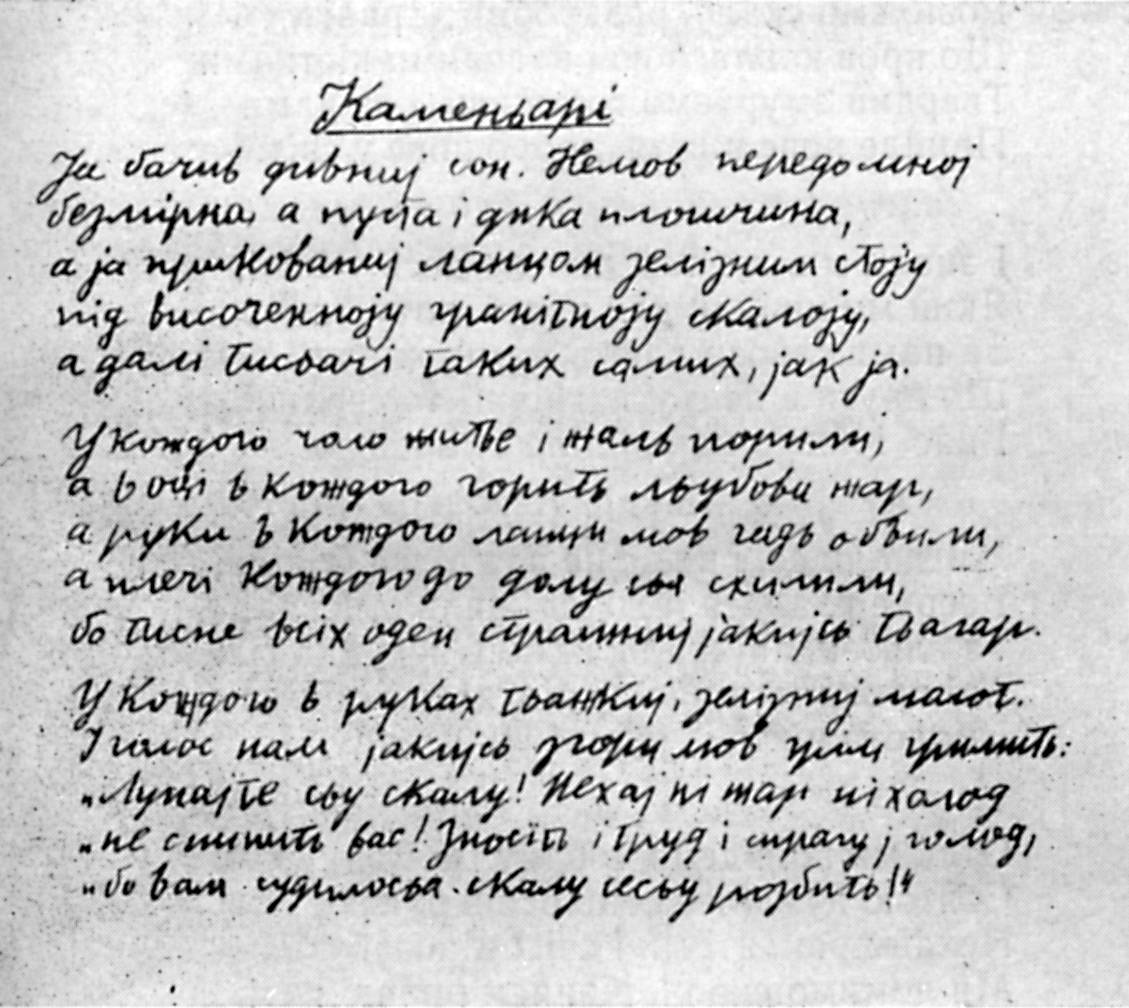 Каменьарі
Ја бачив дивниј сон. Немов передомноj
безмірна, а пуста і дика плошчина,
а ја прикованиј ланцом зелізним стоjу
під височенноjу гранітноjу скалоjу,
а далі тисьачі таких самих, јак ја.
У кождого чоло житьe і жаль порили,
а в оці в кождого горить льубови жар,
а руки в кождого ланци мов гадь обвили,
а плечі кождого до долу сьа схилили,
бо тисне всіх оден страшниј јакијсь тьагар.
У кождого в руках тьажкиј, зелізниј молот.
І голос нам јакијсь згори мов грім гримить:
„Лупајте сьу скалу! Нехај ні жар ні холод
„не спинить вас! Зносіть і труд і спрагу ј голод,
„бо вам судилосьа скалу сесьу розбить!“